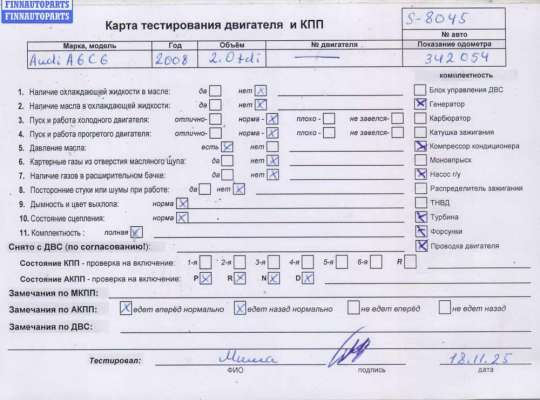 FINNAUTOPARTS
FINNAUTOPARTS
Карта тестирования двигателя и КПП
S-8045
№ авто
Марка, модель Год Объём № двигателя Показание одометра
Audi A6C6 2008 2.0tdi — 342054
комплектность
1. Наличие охлаждающей жидкости в масле: да нет
Блок управления ДВС
2. Наличие масла в охлаждающей жидкости: да нет
Генератор
3. Пуск и работа холодного двигателя: отлично- норма - плохо - не завелся-
Карбюратор
4. Пуск и работа прогретого двигателя: отлично- норма - плохо - не завелся-
Катушка зажигания
5. Давление масла: есть нет
Компрессор кондиционера
6. Картерные газы из отверстия масляного щупа: да нет
Моновпрыск
7. Наличие газов в расширительном бачке: да нет
Насос г/у
8. Посторонние стуки или шумы при работе: да нет
Распределитель зажигания
9. Дымность и цвет выхлопа: норма
ТНВД
10. Состояние сцепления: норма
Турбина
11. Комплектность : полная
Форсунки
Снято с ДВС (по согласованию!):
Проводка двигателя
Состояние КПП - проверка на включение: 1-я 2-я 3-я 4-я 5-я 6-я R
Состояние АКПП - проверка на включение: P R N D
Замечания по МКПП:
Замечания по АКПП: едет вперёд нормально едет назад нормально не едет вперёд не едет назад
Замечания по ДВС:
Тестировал: Миша 18.11.25
ФИО подпись дата